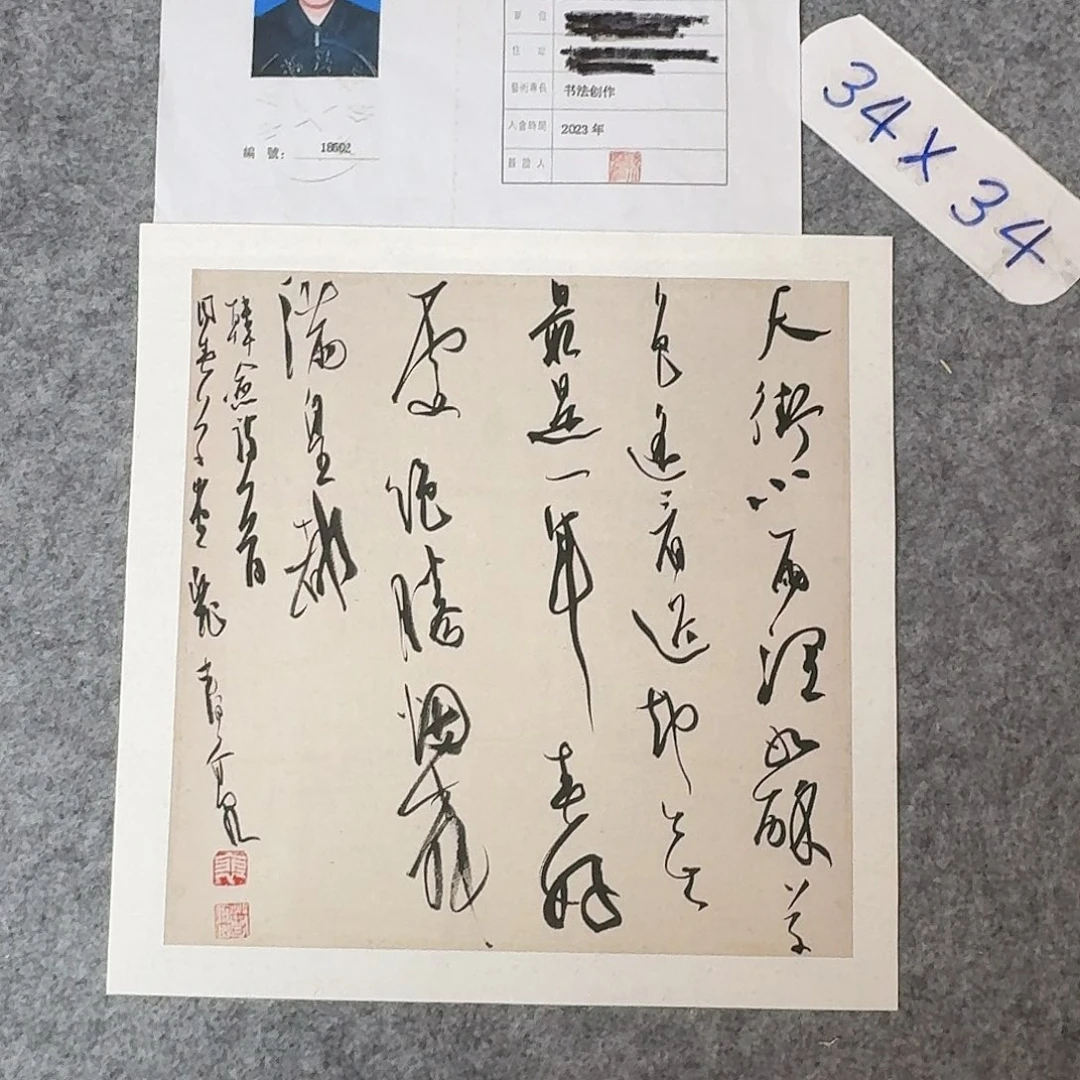 單 位
住 址
藝術專長 书法创作
入會時間 2023 年
證 人
編 號： 18602
34 X 34
天街小雨润如酥草
色遥看近却无
最是一年春好
處絕勝烟柳
滿皇都
韓愈詩一首